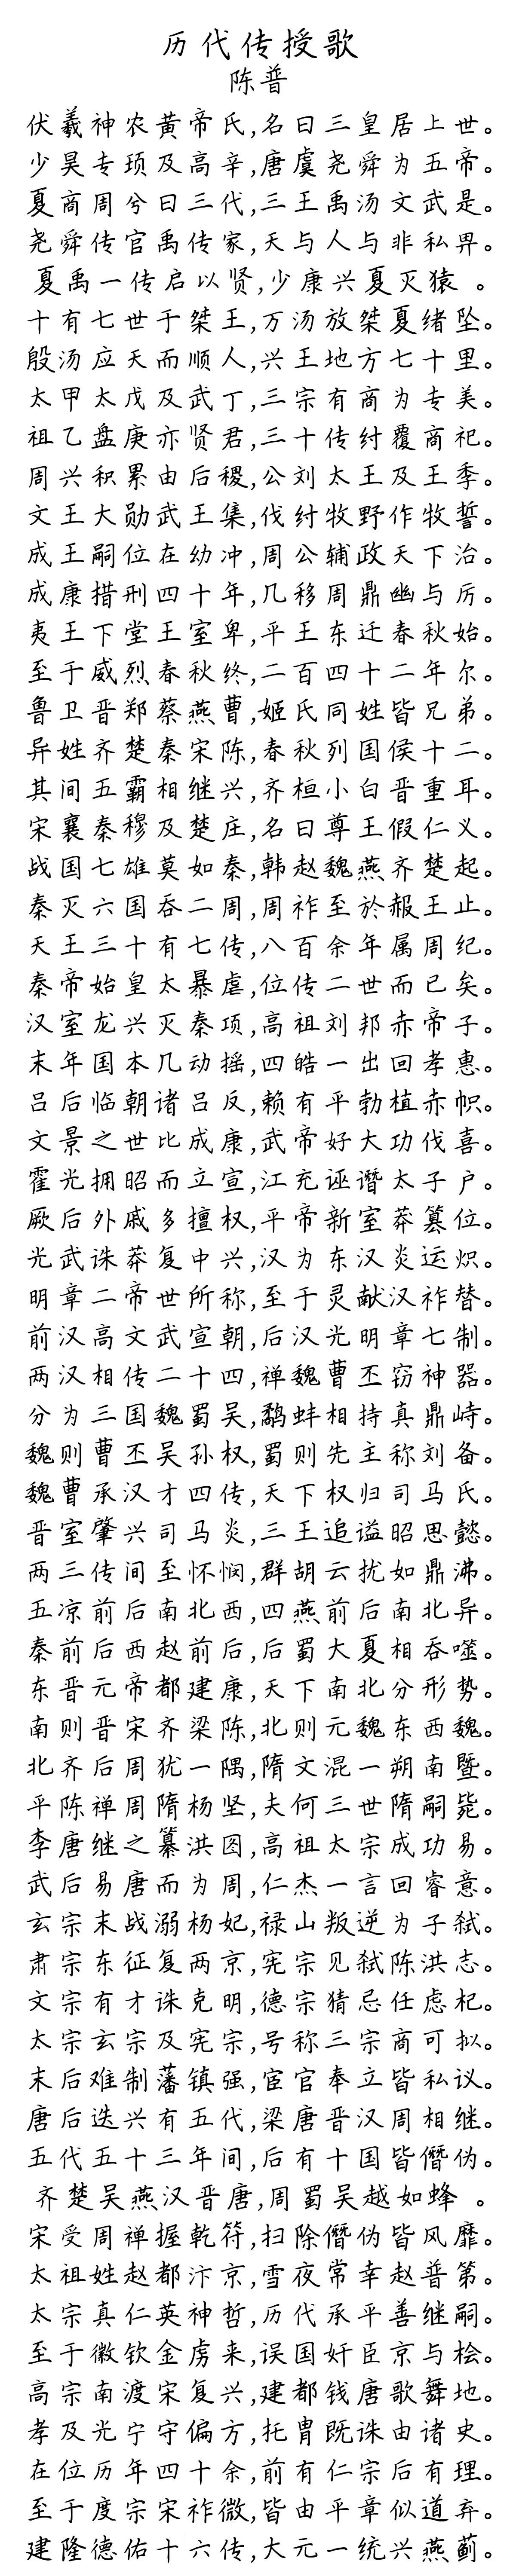 历代传授歌
陈普
伏羲神农黄帝氏,名曰三皇居上世。
少昊专顼及高辛,唐虞尧舜为五帝。
夏商周兮曰三代,三王禹汤文武是。
尧舜传官禹传家,天与人与非私畀。
夏禹一传启以贤,少康兴夏灭猿 。
十有七世于桀王,万汤放桀夏绪坠。
殷汤应天而顺人,兴王地方七十里。
太甲太戊及武丁,三宗有商为专美。
祖乙盘庚亦贤君,三十传纣覆商祀。
周兴积累由后稷,公刘太王及王季。
文王大勋武王集,伐纣牧野作牧誓。
成王嗣位在幼冲,周公辅政天下治。
成康措刑四十年,几移周鼎幽与厉。
夷王下堂王室卑,平王东迁春秋始。
至于威烈春秋终,二百四十二年尔。
鲁卫晋郑蔡燕曹,姬氏同姓皆兄弟。
异姓齐楚秦宋陈,春秋列国侯十二。
其间五霸相继兴,齐桓小白晋重耳。
宋襄秦穆及楚庄,名曰尊王假仁义。
战国七雄莫如秦,韩赵魏燕齐楚起。
秦灭六国吞二周,周祚至於赧王止。
天王三十有七传,八百余年属周纪。
秦帝始皇太暴虐,位传二世而已矣。
汉室龙兴灭秦项,高祖刘邦赤帝子。
末年国本几动摇,四皓一出回孝惠。
吕后临朝诸吕反,赖有平勃植赤帜。
文景之世比成康,武帝好大功伐喜。
霍光拥昭而立宣,江充诬谮太子户。
厥后外戚多擅权,平帝新室莽篡位。
光武诛莽复中兴,汉为东汉炎运炽。
明章二帝世所称,至于灵献汉祚替。
前汉高文武宣朝,后汉光明章七制。
两汉相传二十四,禅魏曹丕窃神器。
分为三国魏蜀吴,鹬蚌相持真鼎峙。
魏则曹丕吴孙权,蜀则先主称刘备。
魏曹承汉才四传,天下权归司马氏。
晋室肇兴司马炎,三王追谥昭思懿。
两三传间至怀悯,群胡云扰如鼎沸。
五凉前后南北西,四燕前后南北异。
秦前后西赵前后,后蜀大夏相吞噬。
东晋元帝都建康,天下南北分形势。
南则晋宋齐梁陈,北则元魏东西魏。
北齐后周犹一隅,隋文混一朔南暨。
平陈禅周隋杨坚,夫何三世隋嗣毙。
李唐继之纂洪图,高祖太宗成功易。
武后易唐而为周,仁杰一言回睿意。
玄宗末战溺杨妃,禄山叛逆为子弑。
肃宗东征复两京,宪宗见弑陈洪志。
文宗有才诛克明,德宗猜忌任虑杞。
太宗玄宗及宪宗,号称三宗商可拟。
末后难制藩镇强,宦官奉立皆私议。
唐后迭兴有五代,梁唐晋汉周相继。
五代五十三年间,后有十国皆僭伪。
齐楚吴燕汉晋唐,周蜀吴越如蜂 。
宋受周禅握乾符,扫除僭伪皆风靡。
太祖姓赵都汴京,雪夜常幸赵普第。
太宗真仁英神哲,历代承平善继嗣。
至于徽钦金虏来,误国奸臣京与桧。
高宗南渡宋复兴,建都钱唐歌舞地。
孝及光宁守偏方,托胄既诛由诸史。
在位历年四十余,前有仁宗后有理。
至于度宗宋祚微,皆由平章似道弃。
建隆德佑十六传,大元一统兴燕蓟。